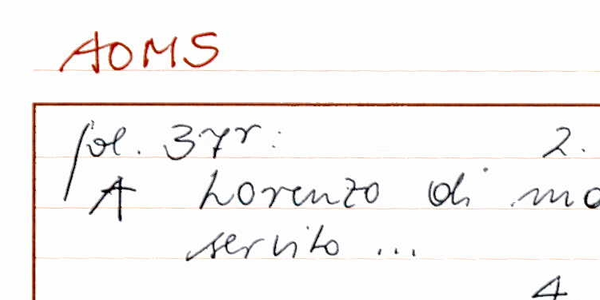 AOMS
fol. 37r: 2.
A Lorenzo di mo
servito ...
A